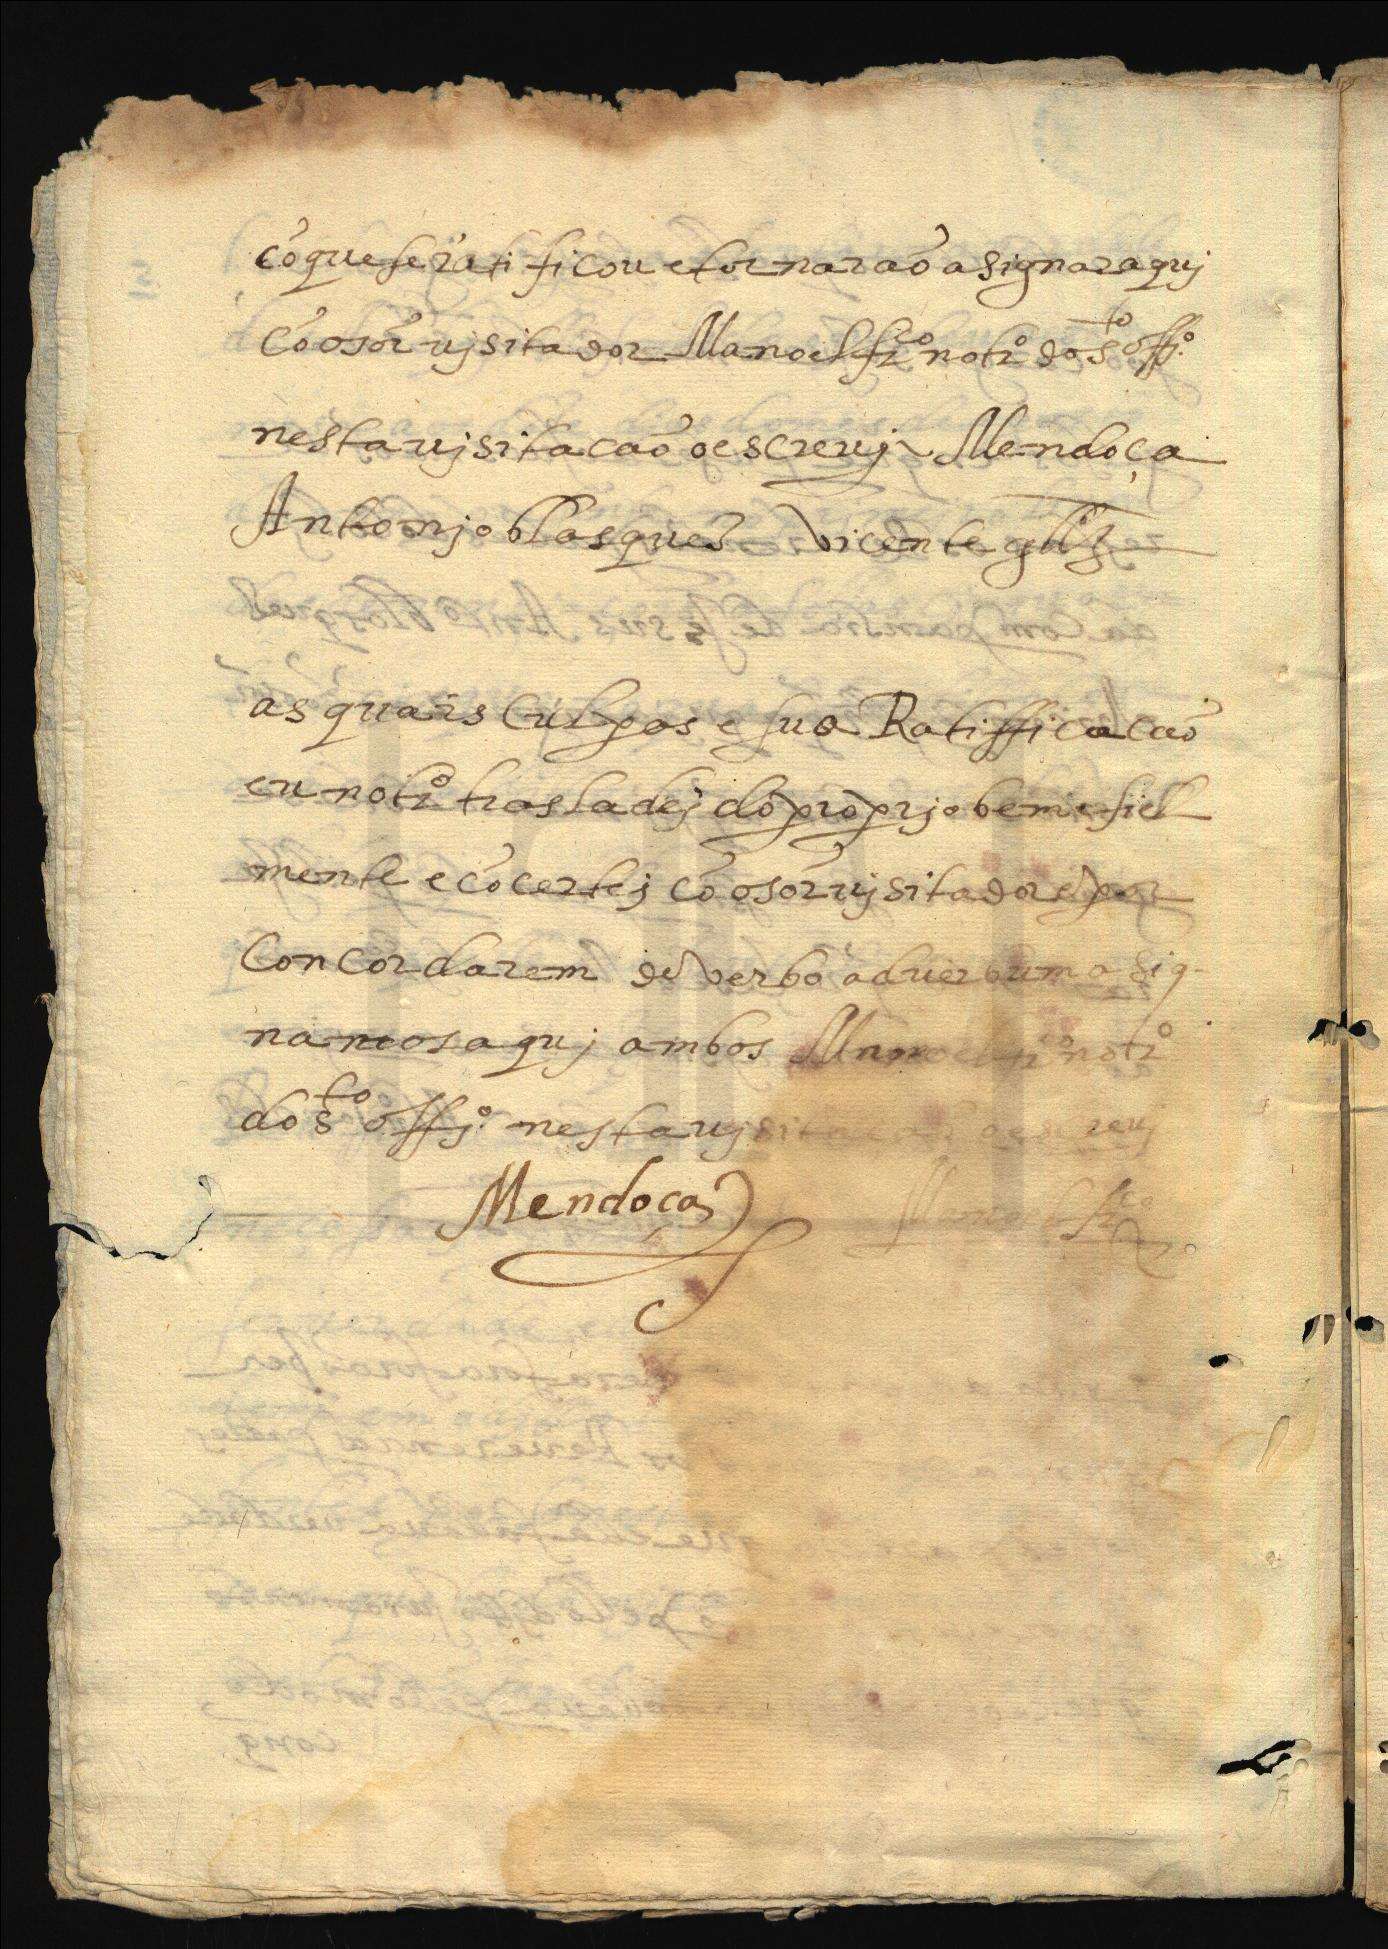 cõ que se ratificou e tornaraõ asignar aquj
Cõ o sõr vjsitador Manoel frco notro do sto offo.
nesta vjsitacaõ o escrevj Mendoça
Antonjo blasques Vicente glz
as quais Culpas e sua Ratifficacaõ
eu notro trasladej do proprjo bem e fiel
mente e cõcertej cõ o sõr vjsitador e por
Concordarem de verbo ad verbum asig-
namos aquj ambos Manoel frco notro
do sto offjo. nesta vjsitacaõ o escrevj
Mendoça Manoel frco